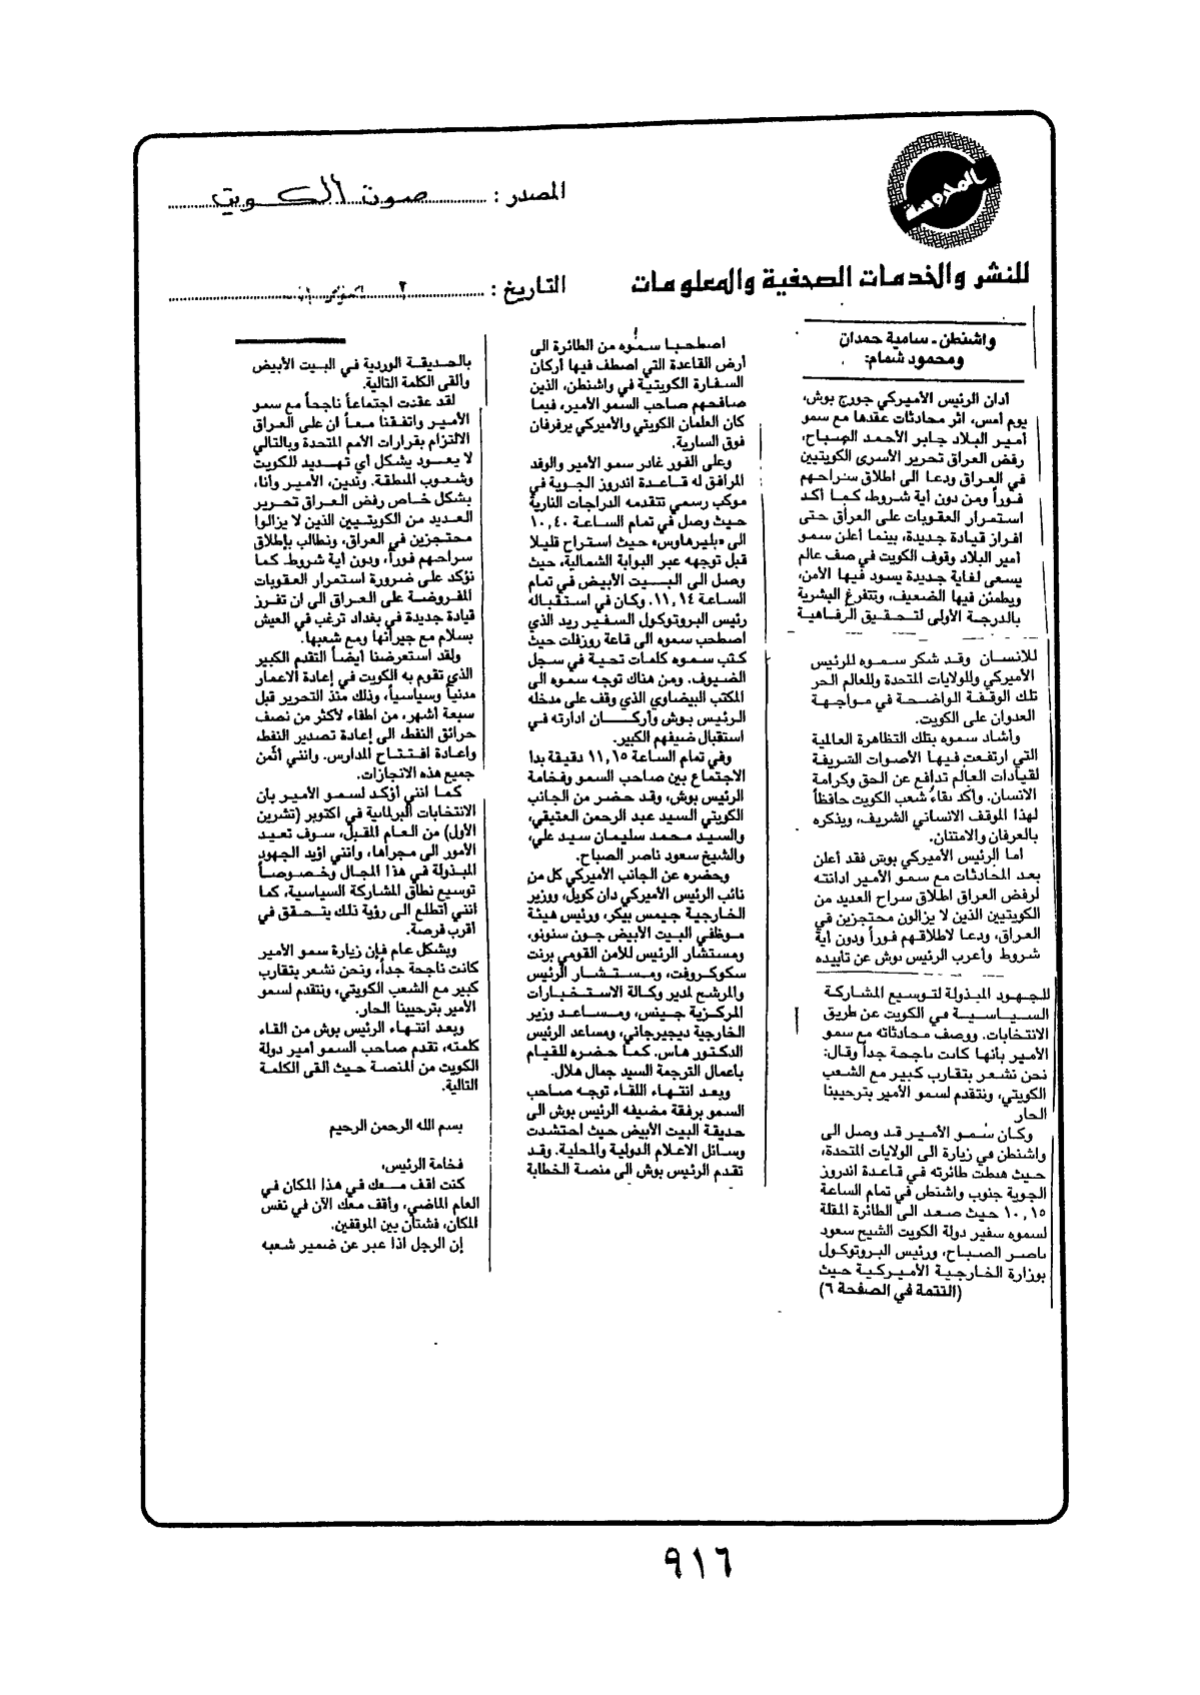 المحروسة
المصدر : صوت الكويت
للنشر والخدمات الصحفية والمعلومات
التاريخ : ٢
واشنطن ـ سامية حمدان
ومحمود شمام:
ادان الرئيس الأميركي جورج بوش،
يوم أمس، اثر محادثات عقدها مع سمو
أمير البلاد جابر الأحمد الصباح،
رفض العراق تحرير الأسرى الكويتيين
في العراق ودعا الى اطلاق سراحهم
فوراً ومن دون أية شروط، كما أكد
استمرار العقوبات على العراق حتى
افراز قيادة جديدة، بينما أعلن سمو
أمير البلاد وقوف الكويت في صف عالم
يسعى لغاية جديدة يسود فيها الأمن،
ويطمئن فيها الضعيف، وتتفرغ البشرية
بالدرجة الأولى لتحقيق الرفاهية
للانسان وقد شكر سموه للرئيس
الأميركي وللولايات المتحدة وللعالم الحر
تلك الوقفة الواضحة في مواجهة
العدوان على الكويت.
وأشاد سموه بتلك التظاهرة العالمية
التي ارتفعت فيها الأصوات الشريفة
لقيادات العالم تدافع عن الحق وكرامة
الانسان. وأكد بقاء شعب الكويت حافظاً
لهذا الموقف الانساني الشريف، ويذكره
بالعرفان والامتنان.
اما الرئيس الأميركي بوش فقد أعلن
بعد المحادثات مع سمو الأمير ادانته
لرفض العراق اطلاق سراح العديد من
الكويتيين الذين لا يزالون محتجزين في
العراق، ودعا لاطلاقهم فوراً ودون أية
شروط وأعرب الرئيس بوش عن تأييده
للجهود المبذولة لتوسيع المشاركة
السياسية في الكويت عن طريق
الانتخابات. ووصف محادثاته مع سمو
الأمير بأنها كانت ناجحة جداً وقال:
نحن نشعر بتقارب كبير مع الشعب
الكويتي، ونتقدم لسمو الأمير بترحيبنا
الحار
وكان سمو الأمير قد وصل الى
واشنطن في زيارة الى الولايات المتحدة،
حيث هبطت طائرته في قاعدة اندروز
الجوية جنوب واشنطن في تمام الساعة
١٠,١٥ حيث صعد الى الطائرة المقلة
لسموه سفير دولة الكويت الشيخ سعود
ناصر الصباح، ورئيس البروتوكول
بوزارة الخارجية الأميركية حيث
(التتمة في الصفحة ٦)
اصطحبا سموه من الطائرة الى
أرض القاعدة التي اصطف فيها أركان
السفارة الكويتية في واشنطن، الذين
صافحهم صاحب السمو الأمير، فيما
كان العلمان الكويتي والأميركي يرفرفان
فوق السارية.
وعلى الفور غادر سمو الأمير والوفد
المرافق له قاعدة اندروز الجوية في
موكب رسمي تتقدمه الدراجات النارية
حيث وصل في تمام الساعة ١٠,٤٠
الى «بليرهاوس» حيث استراح قليلا
قبل توجهه عبر البوابة الشمالية، حيث
وصل الى البيت الأبيض في تمام
الساعة ١١,١٤. وكان في استقباله
رئيس البروتوكول السفير ريد الذي
اصطحب سموه الى قاعة روزفلت حيث
كتب سموه كلمات تحية في سجل
الضيوف. ومن هناك توجه سموه الى
المكتب البيضاوي الذي وقف على مدخله
الرئيس بوش وأركان ادارته في
استقبال ضيفهم الكبير.
وفي تمام الساعة ١١,١٥ دقيقة بدا
الاجتماع بين صاحب السمو وفخامة
الرئيس بوش، وقد حضر من الجانب
الكويتي السيد عبد الرحمن العتيقي،
والسيد محمد سليمان سيد علي،
والشيخ سعود ناصر الصباح.
وحضره عن الجانب الأميركي كل من
نائب الرئيس الأميركي دان كويل، ووزير
الخارجية جيمس بيكر، ورئيس هيئة
موظفي البيت الأبيض جون سنونو،
ومستشار الرئيس للأمن القومي برنت
سكوكروفت، ومستشار الرئيس
والمرشح لمدير وكالة الاستخبارات
المركزية جيتس، ومساعد وزير
الخارجية ديجيرجاني، ومساعد الرئيس
الدكتور هاس. كما حضره للقيام
باعمال الترجمة السيد جمال هلال.
وبعد انتهاء اللقاء توجه صاحب
السمو برفقة مضيفه الرئيس بوش الى
حديقة البيت الأبيض حيث احتشدت
وسائل الاعلام الدولية والمحلية. وقد
تقدم الرئيس بوش الى منصة الخطابة
بالحديقة الوردية في البيت الأبيض
وألقى الكلمة التالية.
لقد عقدت اجتماعاً ناجحاً مع سمو
الأمير واتفقنا معاً ان على العراق
الالتزام بقرارات الأمم المتحدة وبالتالي
لا يعود يشكل أي تهديد للكويت
وشعوب المنطقة. وندين، الأمير وأنا،
بشكل خاص رفض العراق تحرير
العديد من الكويتيين الذين لا يزالوا
محتجزين في العراق، ونطالب بإطلاق
سراحهم فوراً، ودون أية شروط. كما
نؤكد على ضرورة استمرار العقوبات
المفروضة على العراق الى ان تفرز
قيادة جديدة في بغداد ترغب في العيش
بسلام مع جيرانها ومع شعبها.
ولقد استعرضنا أيضاً التقدم الكبير
الذي تقوم به الكويت في إعادة الاعمار
مدنياً وسياسياً، وذلك منذ التحرير قبل
سبعة أشهر، من اطفاء لأكثر من نصف
حرائق النفط، الى إعادة تصدير النفط،
وإعادة افتتاح المدارس. وانني أثمن
جميع هذه الانجازات.
كما انني أؤكد لسمو الأمير بان
الانتخابات البرلمانية في اكتوبر (تشرين
الأول) من العام المقبل، سوف تعيد
الأمور الى مجراها، وانني أؤيد الجهود
المبذولة في هذا المجال وخصوصاً
توسيع نطاق المشاركة السياسية، كما
انني أتطلع الى رؤية ذلك يتحقق في
أقرب فرصة.
وبشكل عام فإن زيارة سمو الأمير
كانت ناجحة جداً، ونحن نشعر بتقارب
كبير مع الشعب الكويتي، ونتقدم لسمو
الأمير بترحيبنا الحار.
وبعد انتهاء الرئيس بوش من القاء
كلمته، تقدم صاحب السمو أمير دولة
الكويت من المنصة حيث القى الكلمة
التالية.
بسم الله الرحمن الرحيم
فخامة الرئيس،
كنت اقف معك في هذا المكان في
العام الماضي، وأقف معك الآن في نفس
المكان، فشتان بين الموقفين.
إن الرجل اذا عبر عن ضمير شعبه
٩١٦